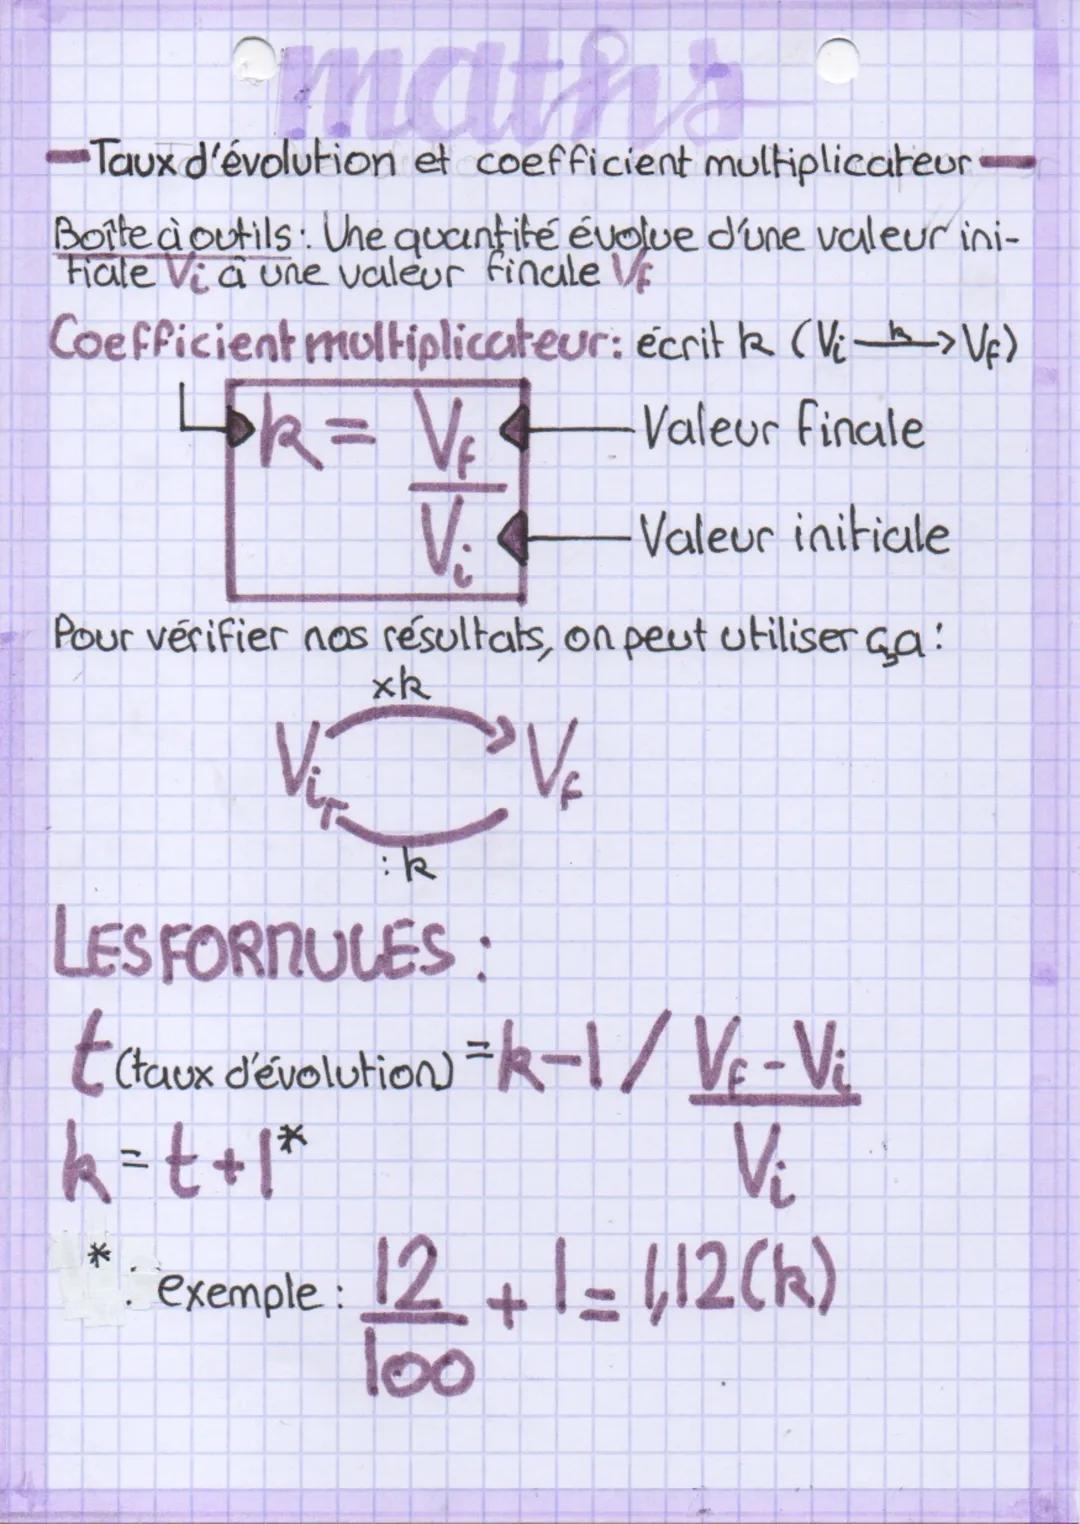 maths
Taux d'évolution et coefficient multiplicateur
Boîte à outils : Une quantité évolue d'une valeur ini-
tiale Vi à une valeur finale Vf
Coefficient multiplicateur: écrit k (Vi —k→ Vf)
k = Vf / Vi
Valeur finale
Valeur initiale
Pour vérifier nos résultats, on peut utiliser ça :
xk
Vi Vf
: k
LES FORMULES :
t (taux d'évolution) = k-1 / Vf - Vi
Vi
k = t + 1*
* : exemple : 12/100 + 1 = 1,12 (k)